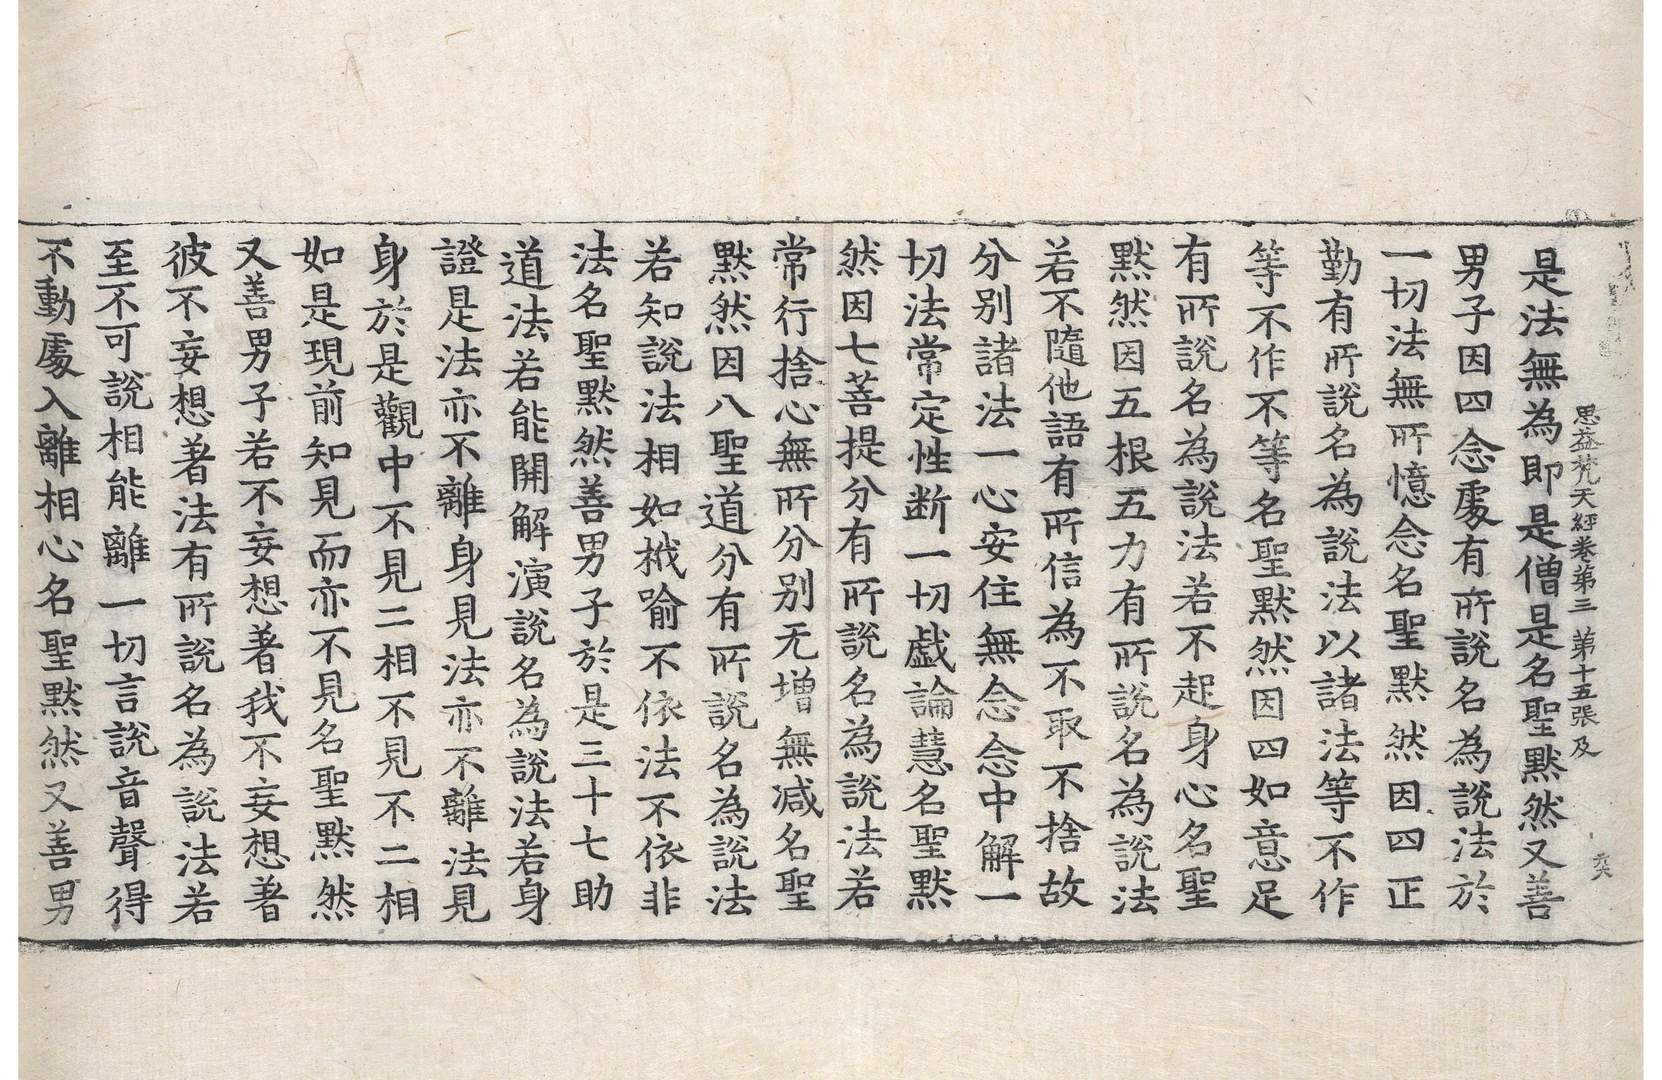 思益梵天經卷第三 第十五張 及
是法無為即是僧是名聖默然又善
男子因四念處有所說名為說法於
一切法無所憶念名聖默然因四正
勤有所說名為說法以諸法等不作
等不作不等名聖默然因四如意足
有所說名為說法若不起身心名聖
默然因五根五力有所說名為說法
若不隨他語有所信為不取不捨故
分別諸法一心安住無念念中解一
切法常定性断一切戯論慧名聖默
然因七菩提分有所說名為說法若
常行捨心無所分別无增無减名聖
默然因八聖道分有所說名為說法
若知說法相如栰喻不依法不依非
法名聖默然善男子於是三十七助
道法若能開解演說名為說法若身
證是法亦不離身見法亦不離法見
身於是觀中不見二相不見不二相
如是現前知見而亦不見名聖默然
又善男子若不妄想著我不妄想著
彼不妄想著法有所說名為說法若
至不可說相能離一切言說音聲得
不動處入離相心名聖默然又善男